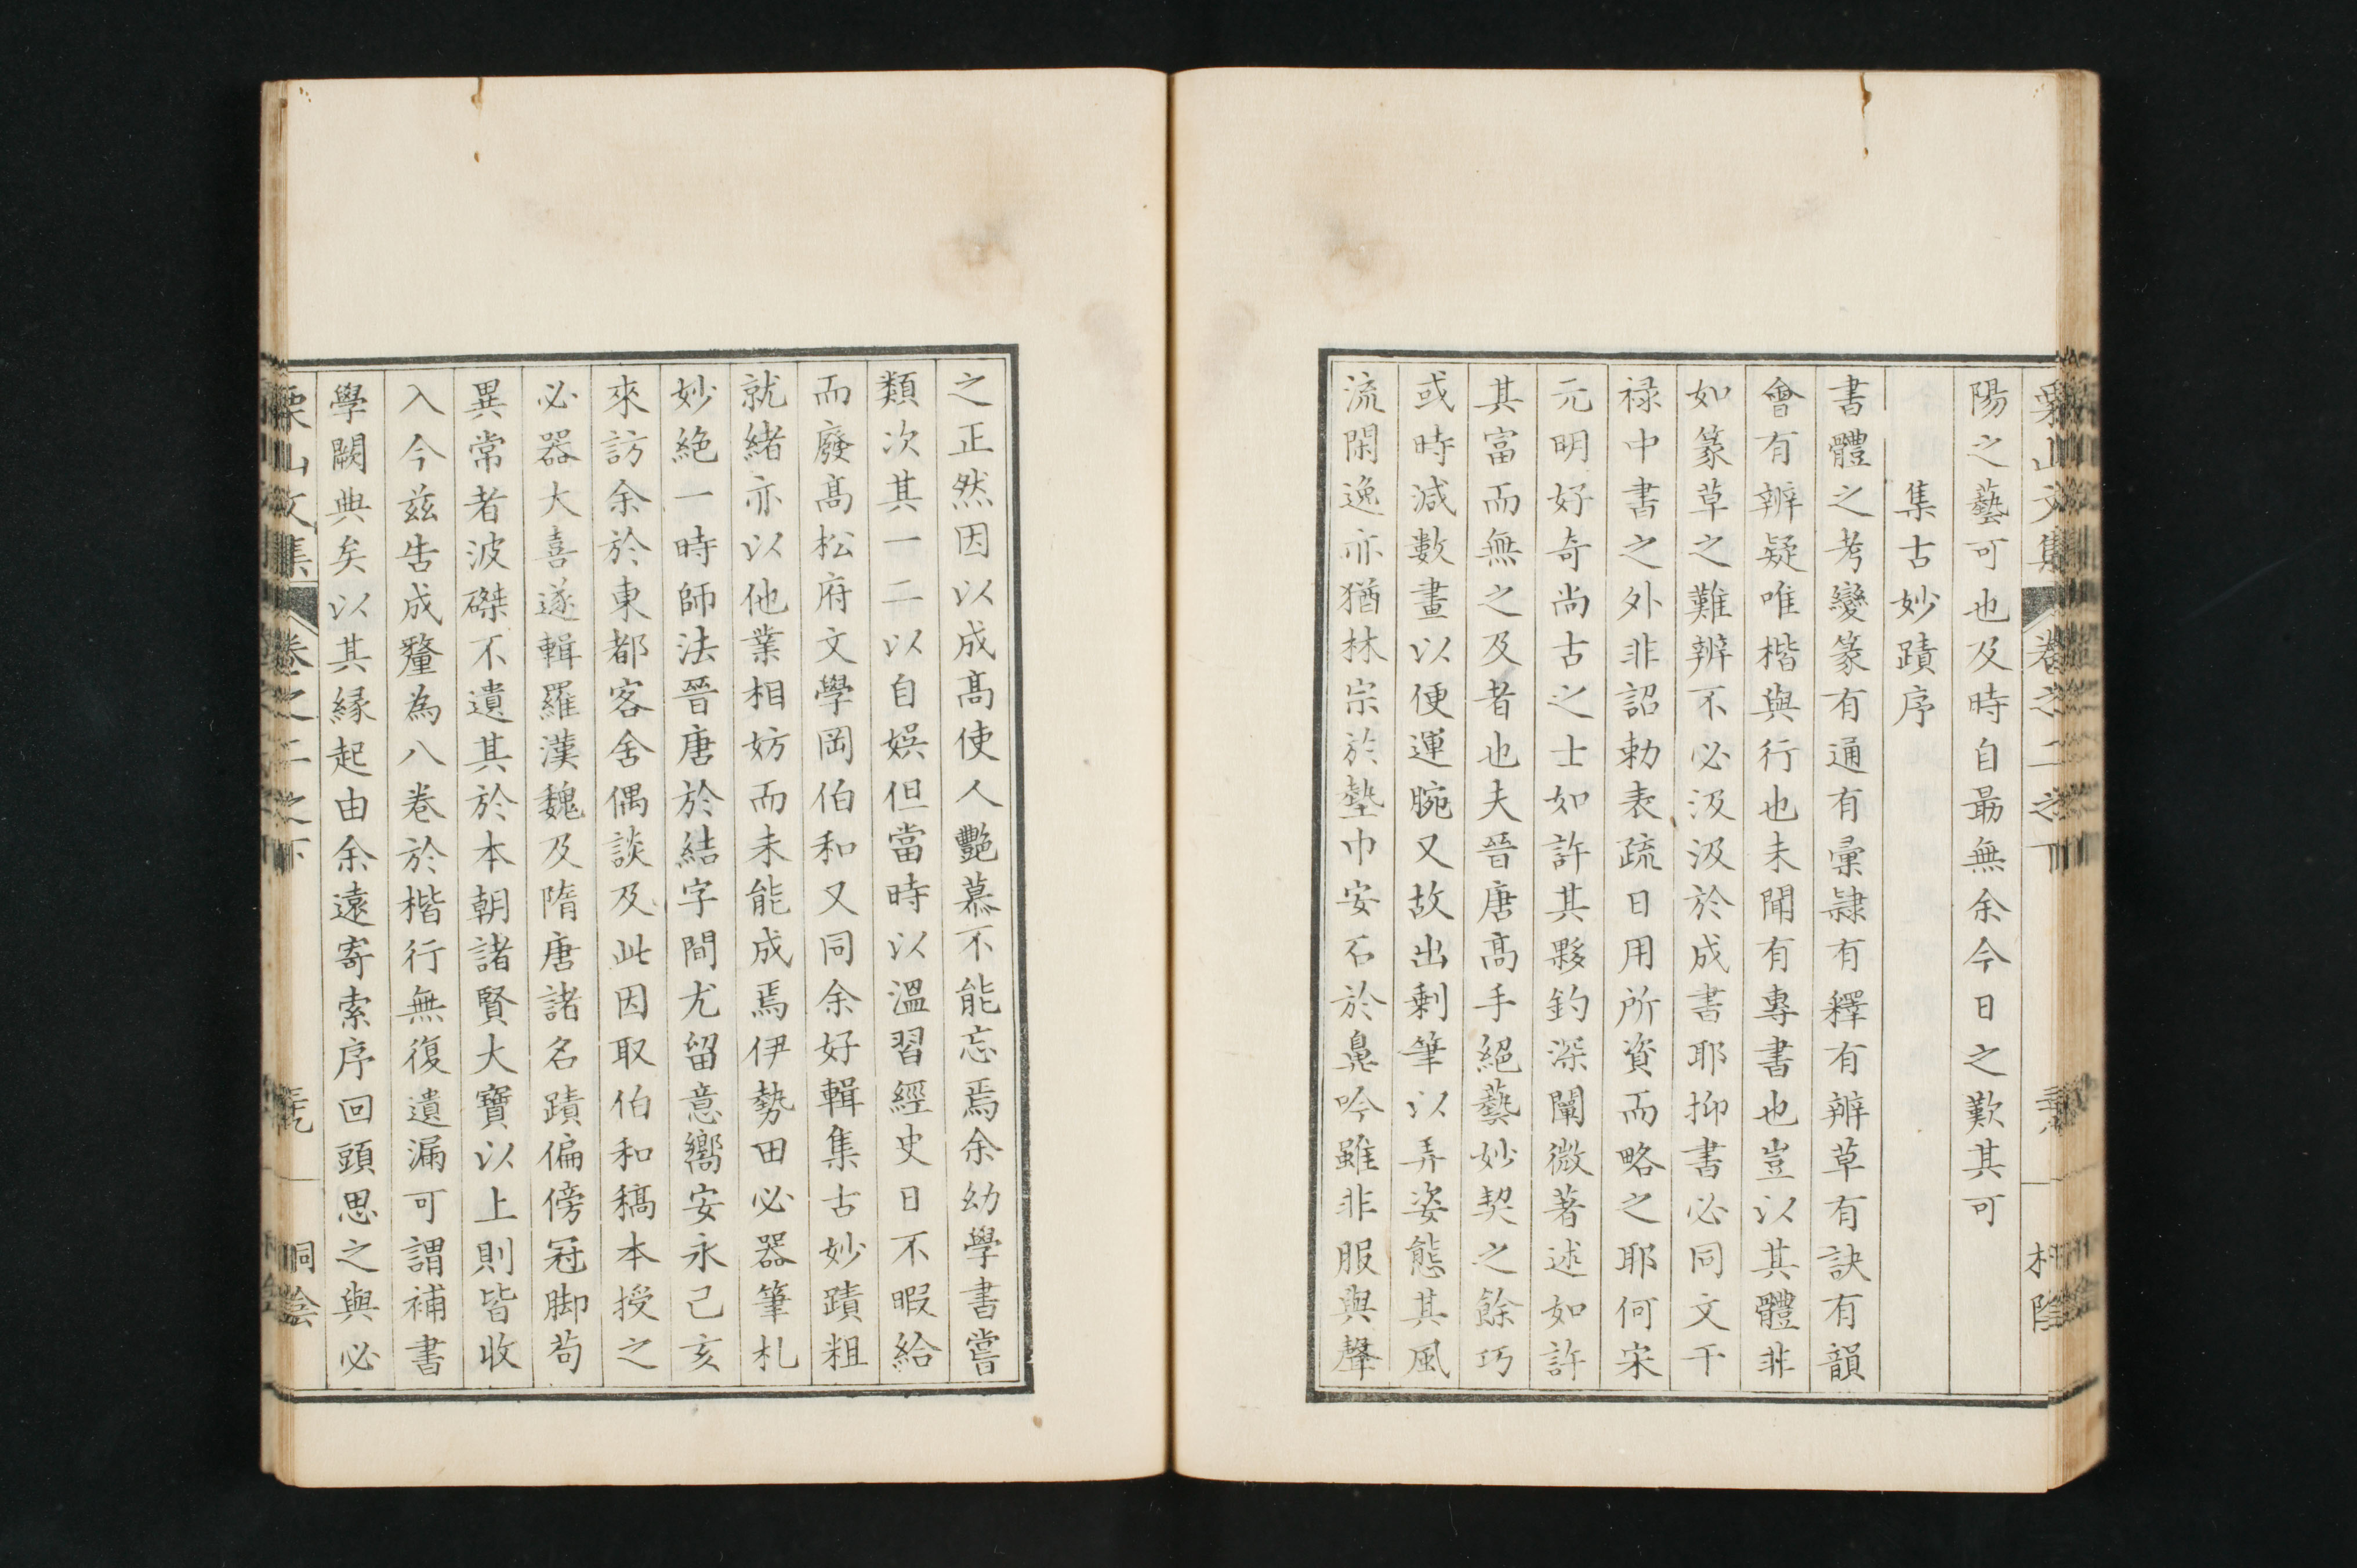 栗山文集 卷之二之下
陽之藝可也及時自勗無余今日之歎其可
集古妙蹟序
書體之考變篆有通有彙隷有釋有辨草有訣有韻
會有辨疑唯楷與行也未聞有專書也豈以其體非
如篆草之難辨不必汲汲於成書耶抑書必同文干
祿中書之外非詔勅表疏日用所資而略之耶何宋
元明好奇尚古之士如許其夥釣深闡微著述如許
其富而無之及者也夫晉唐高手絕藝妙契之餘巧
或時減數畫以便運腕又故出剩筆以弄姿態其風
流閑逸亦猶林宗於墊巾安石於鼻吟雖非服與聲
之正然因以成髙使人艷慕不能忘焉余幼學書嘗
類次其一二以自娛但當時以溫習經史日不暇給
而廢髙松府文學岡伯和又同余好輯集古妙蹟粗
就緒亦以他業相妨而未能成焉伊勢田必器筆札
妙絶一時師法晉唐於結字間尤留意嚮安永己亥
來訪余於東都客舍偶談及此因取伯和稿本授之
必器大喜遂輯羅漢魏及隋唐諸名蹟偏傍冠脚苟
異常者波磔不遺其於本朝諸賢大寶以上則皆收
入今茲告成釐為八卷於楷行無復遺漏可謂補書
學闕典矣以其縁起由余遠寄索序回頭思之與必
栗山文集 卷之二之下